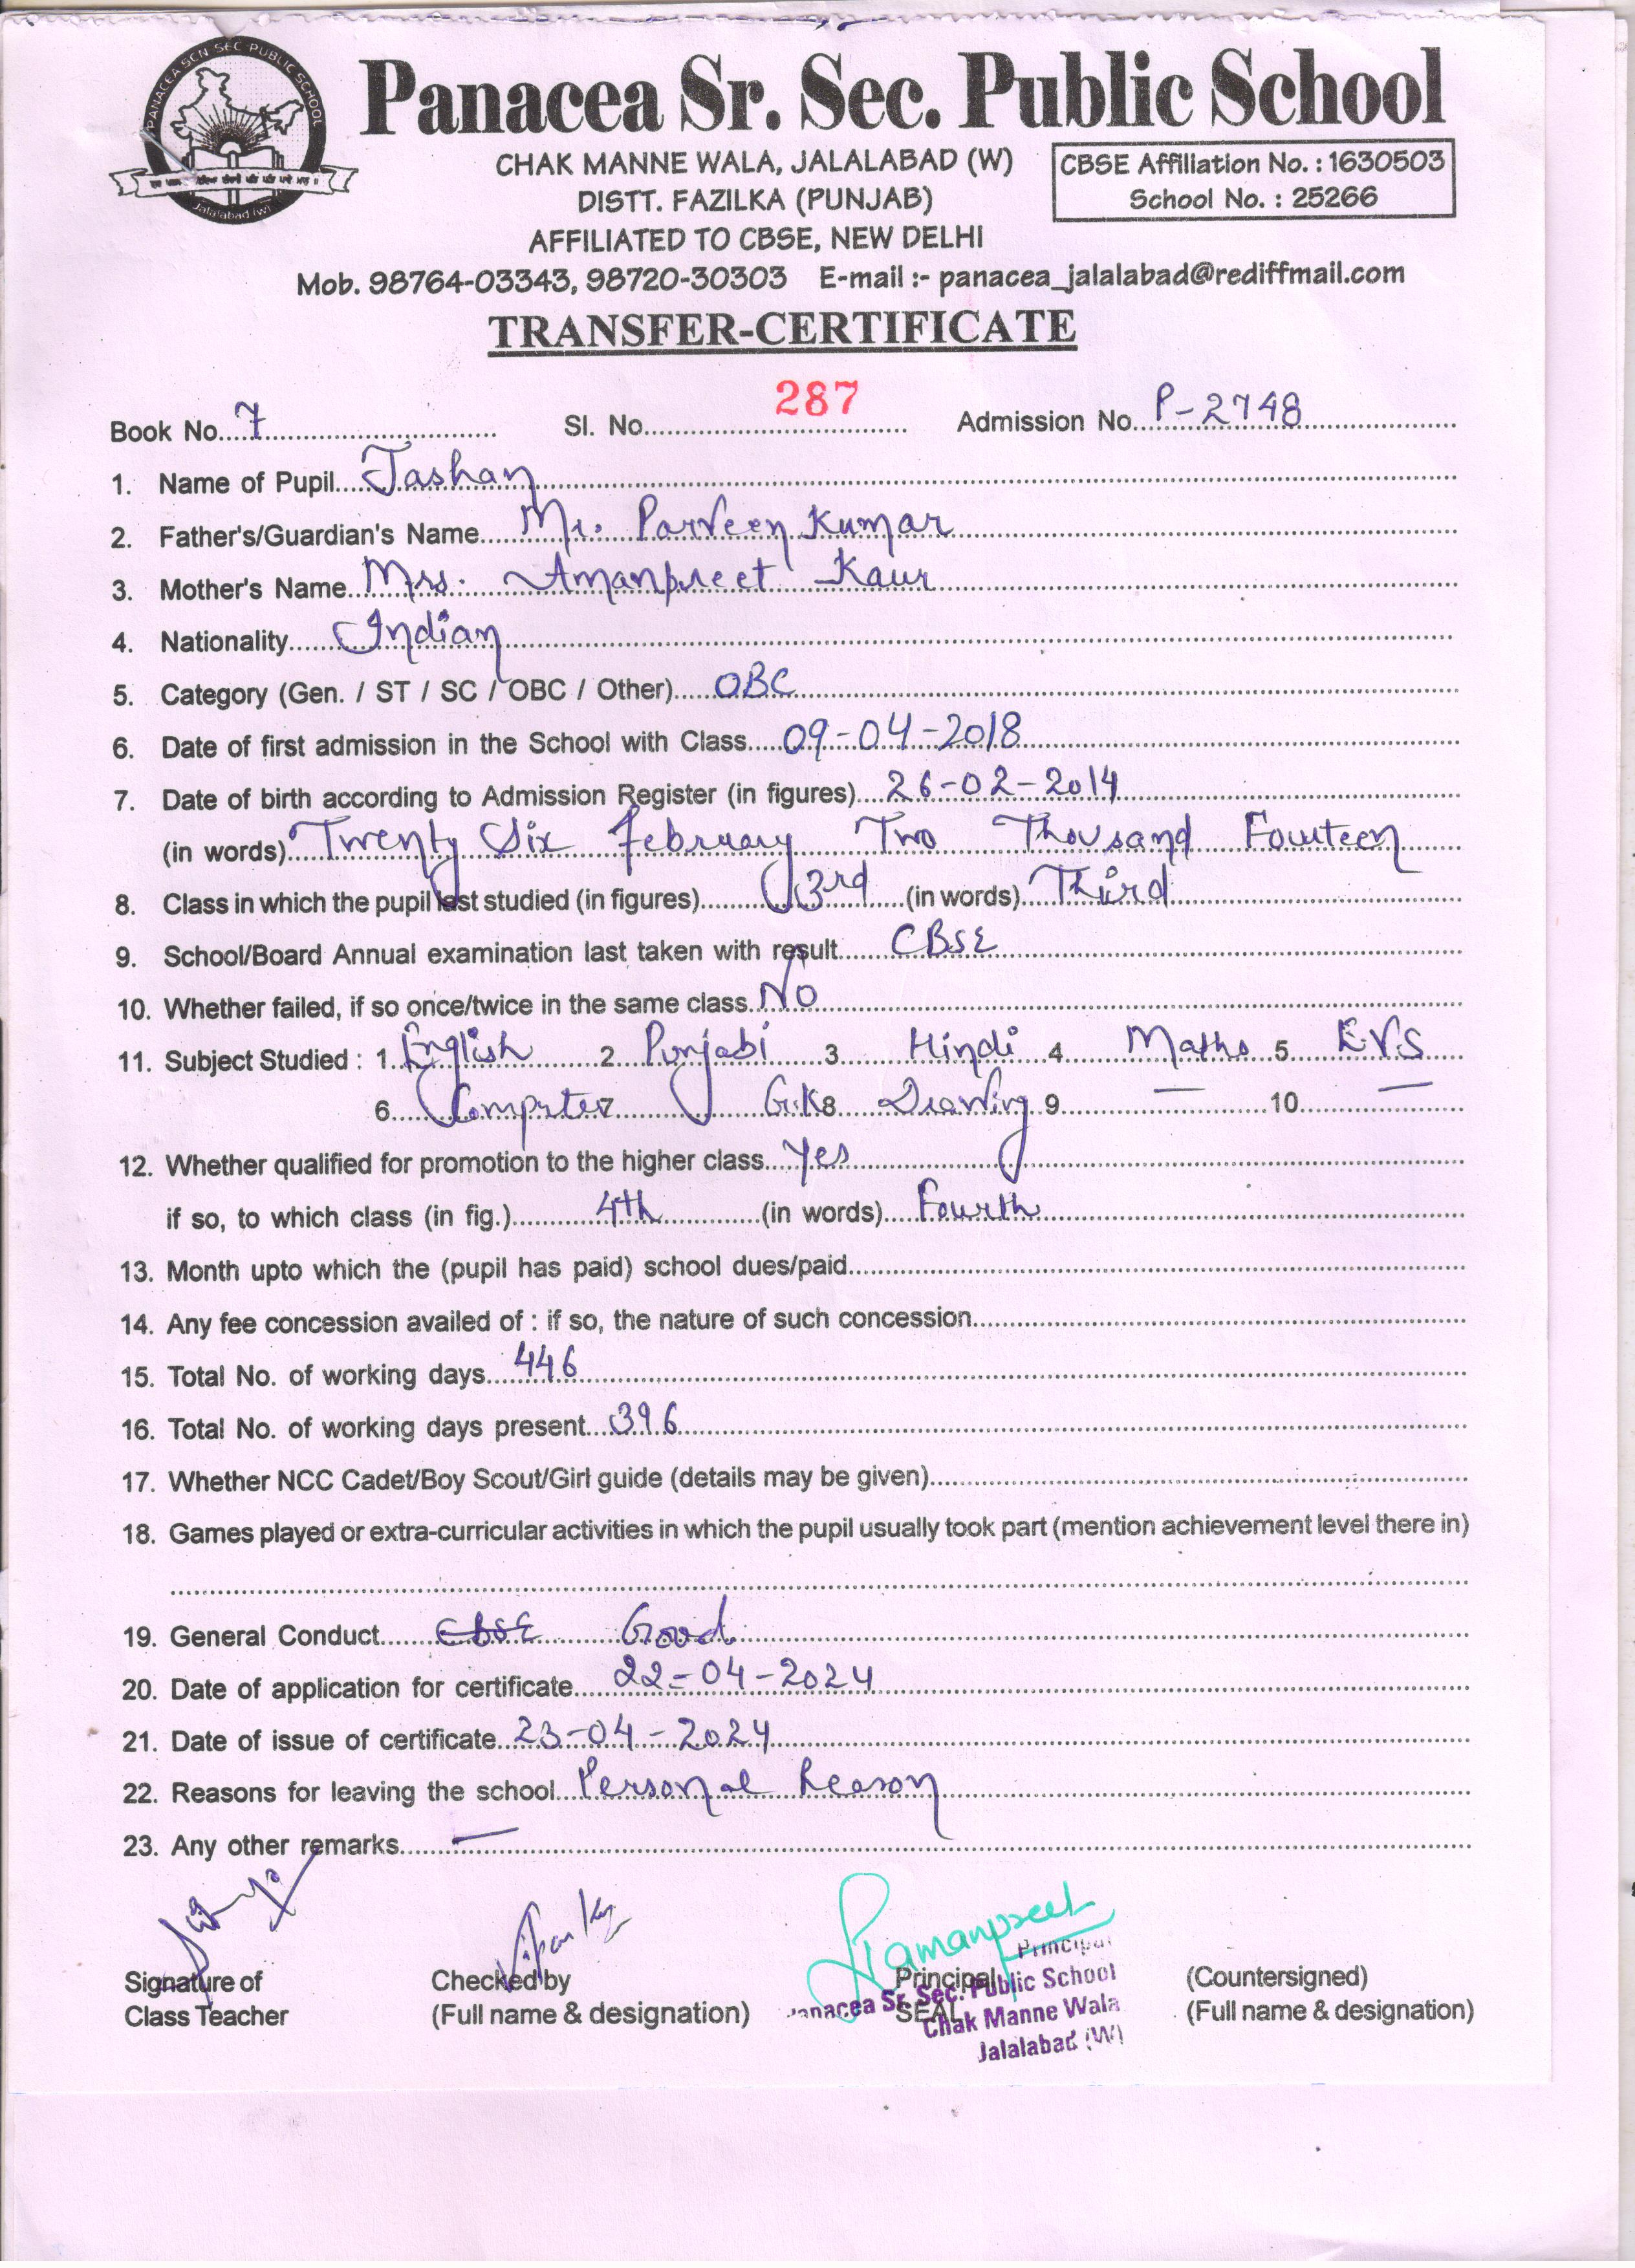 PANACEA SCN SEC PUBLIC SCHOOL
Jalalabad (w)
Panacea Sr. Sec. Public School
CHAK MANNE WALA, JALALABAD (W)
DISTT. FAZILKA (PUNJAB)
AFFILIATED TO CBSE, NEW DELHI
CBSE Affiliation No. : 1630503
School No. : 25266
Mob. 98764-03343, 98720-30303 E-mail :- panacea_jalalabad@rediffmail.com
TRANSFER-CERTIFICATE
Book No. 7 Sl. No. 287 Admission No. P-2748
1. Name of Pupil Jashan
2. Father's/Guardian's Name Mr. Parveen Kumar
3. Mother's Name Mrs. Amanpreet Kaur
4. Nationality Indian
5. Category (Gen. / ST / SC / OBC / Other) OBC
6. Date of first admission in the School with Class 09-04-2018
7. Date of birth according to Admission Register (in figures) 26-02-2014
(in words) Twenty Six February Two Thousand Fourteen
8. Class in which the pupil last studied (in figures) 3rd (in words) Third
9. School/Board Annual examination last taken with result CBSE
10. Whether failed, if so once/twice in the same class. No
11. Subject Studied : 1. English 2 Punjabi 3 Hindi 4 Maths 5 E.V.S
6. Computer 7 G.K 8 Drawing 9 — 10. —
12. Whether qualified for promotion to the higher class Yes
if so, to which class (in fig.) 4th (in words) Fourth
13. Month upto which the (pupil has paid) school dues/paid
14. Any fee concession availed of : if so, the nature of such concession
15. Total No. of working days 446
16. Total No. of working days present 396
17. Whether NCC Cadet/Boy Scout/Girl guide (details may be given)
18. Games played or extra-curricular activities in which the pupil usually took part (mention achievement level there in)
19. General Conduct CBSE Good
20. Date of application for certificate 22-04-2024
21. Date of issue of certificate 23-04-2024
22. Reasons for leaving the school Personal Reason
23. Any other remarks —
Signature of
Class Teacher
Checked by
(Full name & designation)
Principal
SEAL
Principal
Panacea Sr. Sec. Public School
Chak Manne Wala
Jalalabad (W)
(Countersigned)
(Full name & designation)